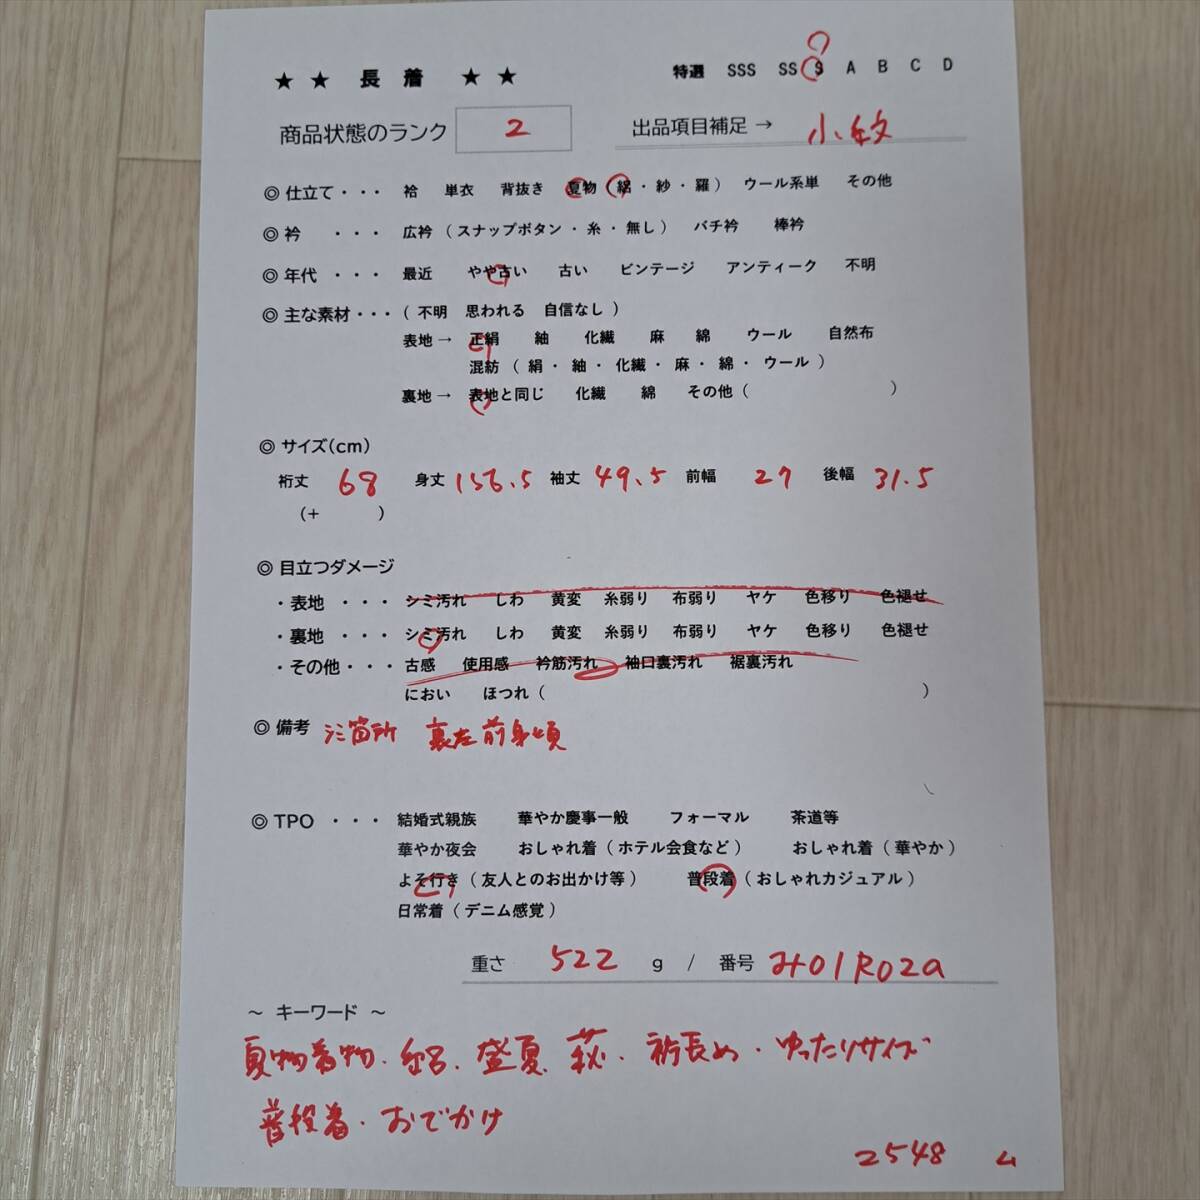 ★ ★ 長 着 ★ ★
特選 SSS SS S A B C D
商品状態のランク 2
出品項目補足 → 小紋
◎ 仕立て・・・ 袷 単衣 背抜き 夏物 ( 絽 ・ 紗 ・ 羅 ) ウール系単 その他
◎ 衿 ・・・ 広衿 ( スナップボタン ・ 糸 ・ 無し ) バチ衿 棒衿
◎ 年代 ・・・ 最近 やや古い 古い ビンテージ アンティーク 不明
◎ 主な素材・・・ ( 不明 思われる 自信なし )
表地 → 正絹 紬 化繊 麻 綿 ウール 自然布
混紡 ( 絹 ・ 紬 ・ 化繊 ・ 麻 ・ 綿 ・ ウール )
裏地 → 表地と同じ 化繊 綿 その他 ( )
◎ サイズ(cm)
裄丈 68 身丈 156.5 袖丈 49.5 前幅 27 後幅 31.5
(+ )
◎ 目立つダメージ
・表地 ・・・ シミ汚れ しわ 黄変 糸弱り 布弱り ヤケ 色移り 色褪せ
・裏地 ・・・ シミ汚れ しわ 黄変 糸弱り 布弱り ヤケ 色移り 色褪せ
・その他・・・ 古感 使用感 衿筋汚れ 袖口裏汚れ 裾裏汚れ
におい ほつれ ( )
◎ 備考 シミ箇所 裏左前身頃
◎ TPO ・・・ 結婚式親族 華やか慶事一般 フォーマル 茶道等
華やか夜会 おしゃれ着 ( ホテル会食など ) おしゃれ着 ( 華やか )
よそ行き ( 友人とのお出かけ等 ) 普段着 ( おしゃれカジュアル )
日常着 ( デニム感覚 )
重さ 522 g / 番号 み01R02a
～ キーワード ～
夏物着物・絽・盛夏・萩・裄長め・ゆったりサイズ
普段着・おでかけ
2548 ム